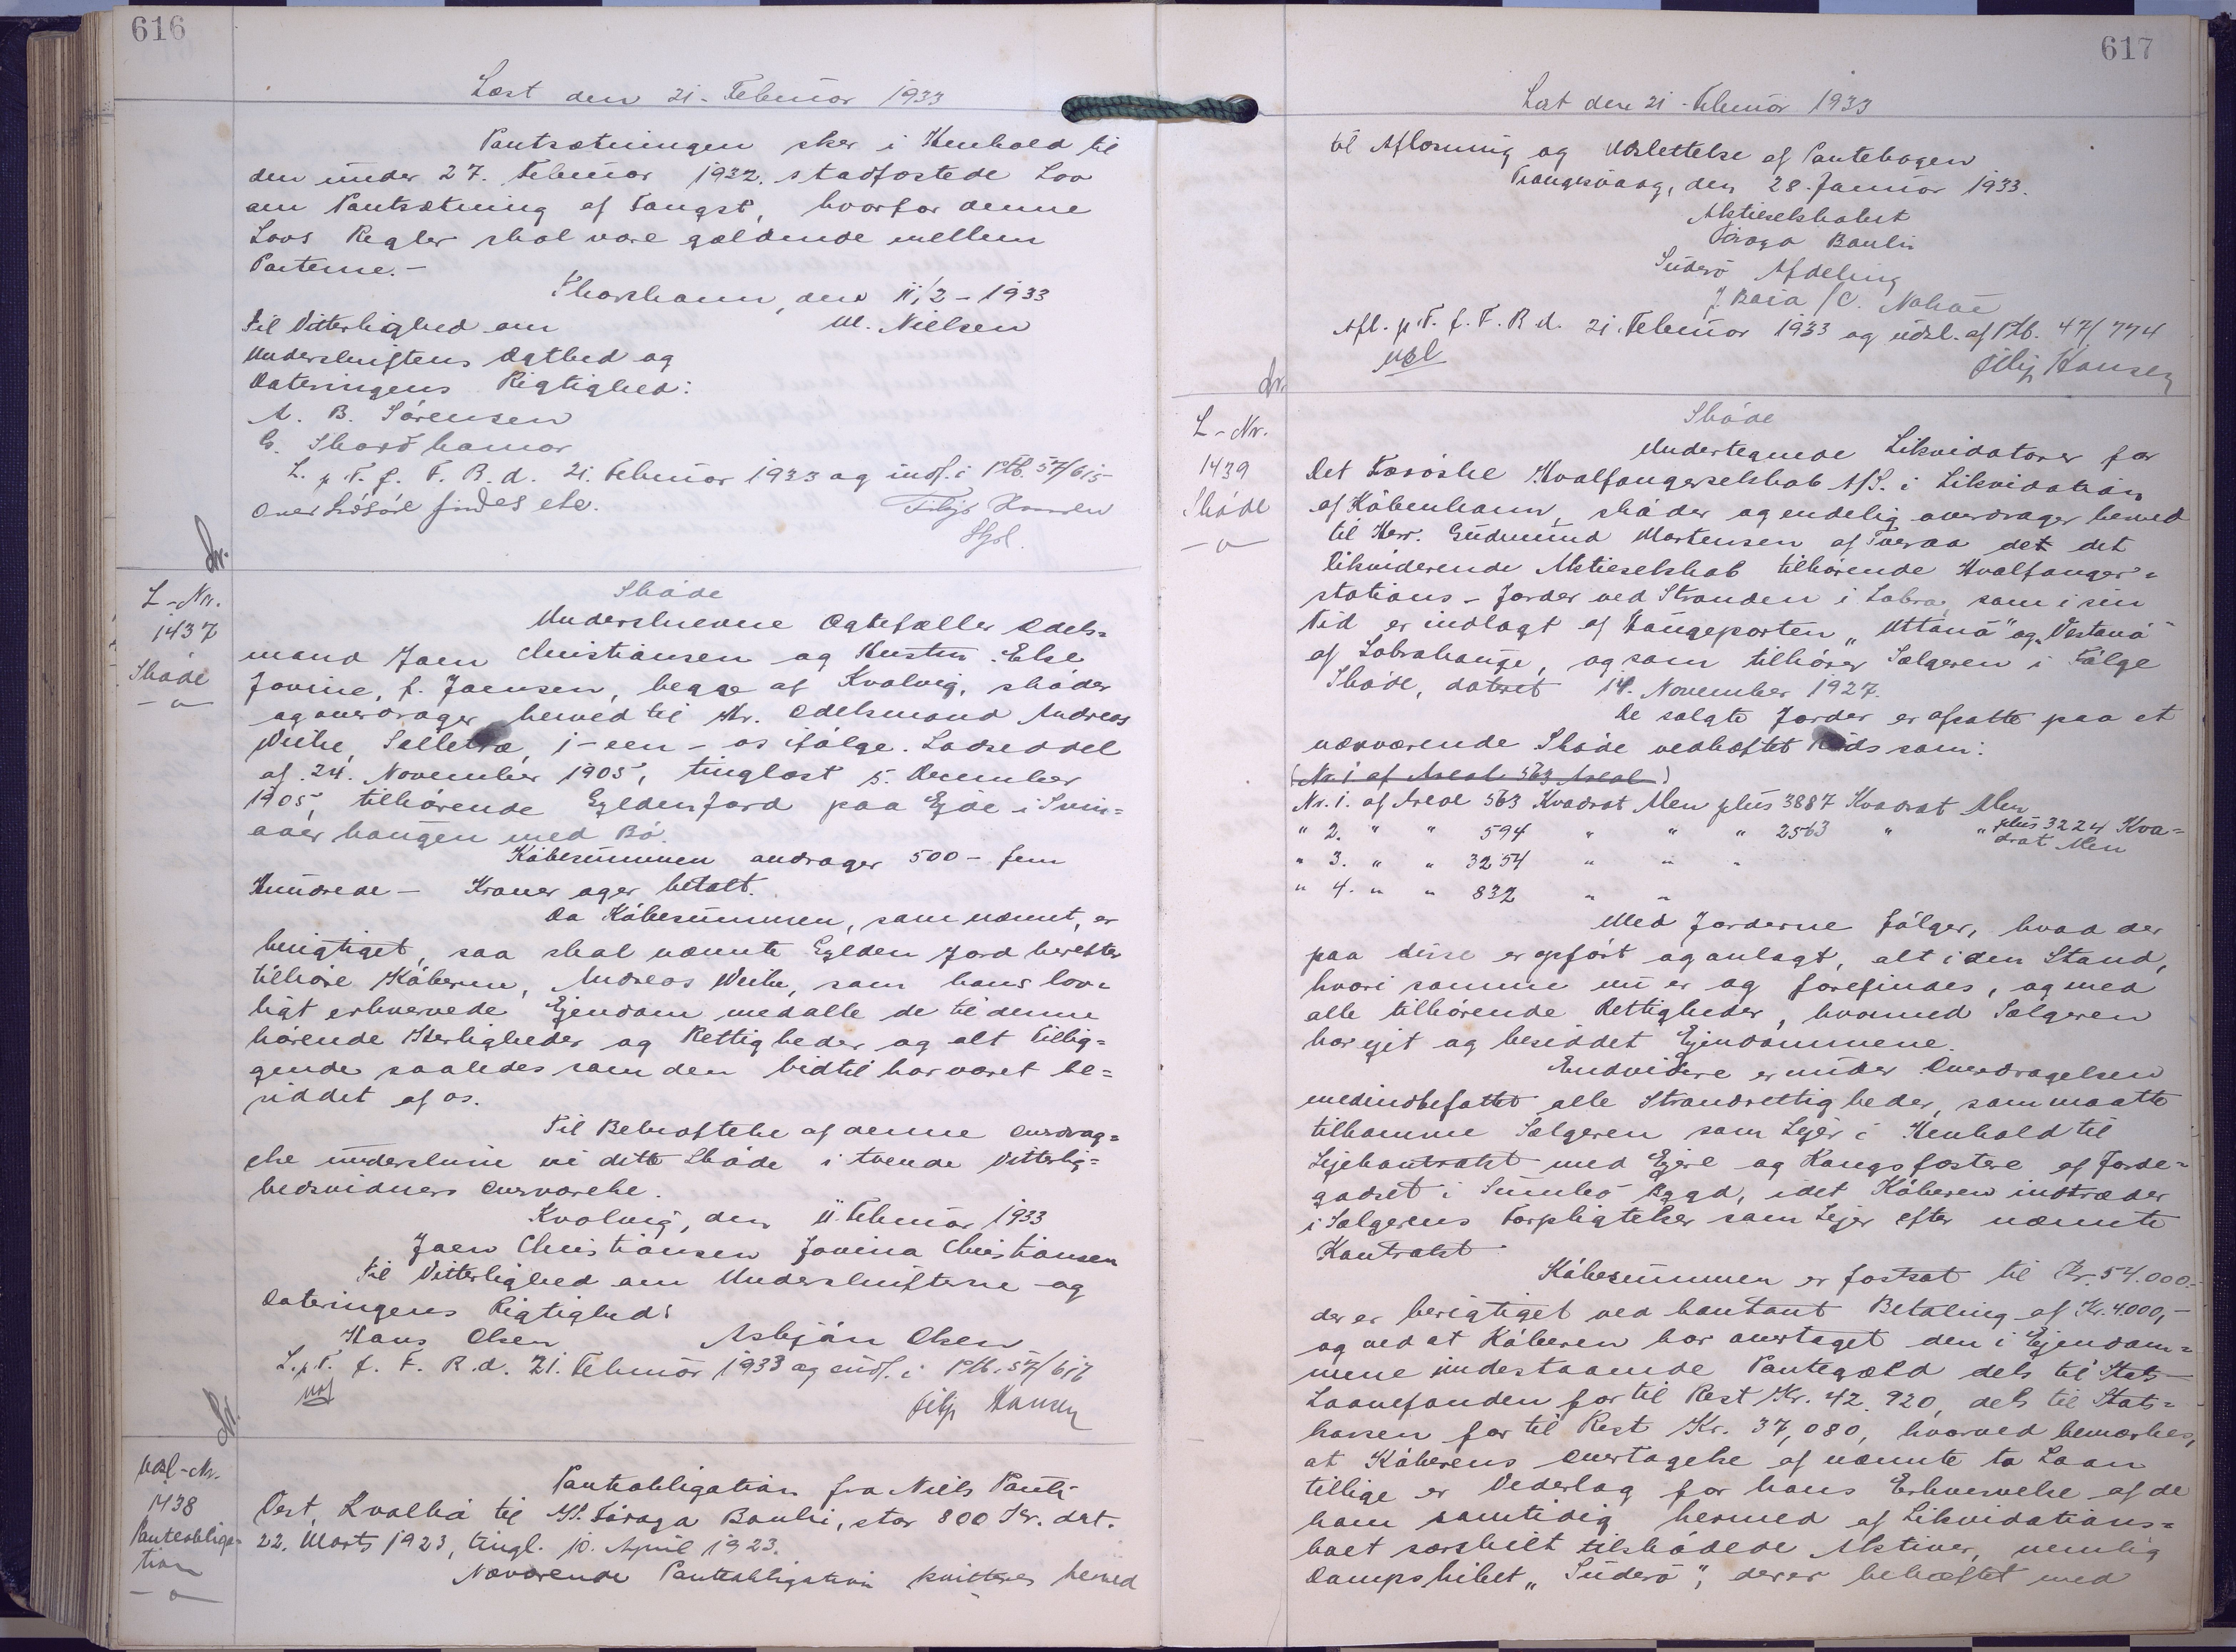 616
Læst den 21. Februar 1933
Pantsætningen sker i Henhold til
den under 27. Februar 1932. stadfæstede Lov
om Pantsætning af Fangst, hvorfor denne
Lovs Regler skal være gældende mellem
Parterne.-
Thorshavn, den 11/2 - 1933
Til Vitterlighed om M. Nielsen
Underskriftens Ægthed og
Dateringens Rigtighed:
A. B. Sörensen
G. Skarðhamar
L. p. T. f. F. R. d. 21. Februar 1933 og indf. i Ptb. 57/615
Hansen
L-Nr.
1437
Sköde
Sköde
Underskrevne Ægtefæller Odels=
mand Joen Christiansen og Hustru Else
Jovine, f. Joensen, begge af Kvalvig, sköder
og overdrager herved til Hr. Odelsmand Andreas
Weihe, Selletræ, 1-een- os ifölge Lodseddel
af 24. November 1905, tinglæst 5. December
1905, tilhörende Gylden Jord paa Ejde i Svin=
aaer haugen med Bö.
Köbesummen andrager 500- fem
Hundrede- Kroner og er betalt.
Da Köbesummen, som nævnt, er
berigtiget, saa skal nævnte Gylden Jord herefter
tilhöre Köberen, Andreas Weihe, som hans lov=
ligt erhvervede Ejendom med alle de til denne
hörende Herligheder og Rettigheder og alt Tillig=
gende saaledes som den hidtil har været be=
siddet af os.
Til Bekræftelse af denne Overdrag=
else underskrive vi dette Sköde i tvende Vitterlig=
hedsvidners Overværelse.
Kvalvig, den 11. Februar 1933
Joen Christiansen Jovina Christiansen
Til Vitterlighed om Underskrifterne og
Dateringens Rigtighed:
Hans Olsen Asbjörn Olsen
L. p. T. f. F. R. d. 21. Februar 1933 og indf. i Ptb. 57/616
Hansen
Udsl-Nr.
1438
Panteobliga=
tion
Panteobligation fra Niels Pauli
Vest, Kvalbö til A/S. Föroya Banki, stor 800 Kr. dat.
22. Marts 1923, tingl. 10. April 1923.
Nærværende Panteobligation kvitteres herved
617
Læst den 21. Februar 1933
til Aflæsning og Udslettelse af Pantebogen
Trangisvaag, den 28. Januar 1933.
Aktieselskabet
Föroya Banki
Suderö Afdeling
Afl. p. T. f. F. R. d. 21. Februar 1933 og udsl. af Ptb. 47/774
Udsl
Hansen
L-Nr.
1439
Sköde
Sköde
Undertegnede Likvidatorer for
Det Færöske Hvalfangerselskab A/S. i Likvidation
af Köbenhavn, sköder og endelig overdrager herved
til Herr. Gudmund Mortensen af Tveraa det det
likviderende Aktieselskab tilhörende Hvalfanger=
stations-Jorder ved Stranden i Lobra, som i sin
Tid er indlagt af Haugeparten "Uttanå" og "Vestanå"
af Lobrahauge, og som tilhörer Sælgeren i Fölge
Sköde, dateret 14. November 1927.
De solgte Jorder er afsatte paa et
nærværende Sköde vedhæftet Rids som:
(Nr. 1 af Areal 563 Areal)
Nr. 1. af Areal 563 Kvadrat Alen plus 3887 Kvadrat Alen
" 2. " " 594 " " " 2563 " " plus 3224 Kva=
drat Alen
" 3. " " 3254 " " "
" 4. " " 832 " "
Med Jorderne fölger, hvad der
paa disse er opfört og anlagt, alt i den Stand,
hvori samme nu er og forefindes, og med
alle tilhörende Rettigheder, hvormed Sælgeren
har ejet og besiddet Ejendommene.
Endvidere er under Overdragelsen
medindbefattet alle Strandrettigheder, som maatte
tilkomme Sælgeren som Lejer i Henhold til
Lejekontrakt med Ejere og Kongsfæstere af Jorde=
godset i Sumbö Bygd, idet Köberen indtræder
i Sælgerens Forpligtelser som Lejer efter nævnte
Kontrakt
Köbesummen er fastsat til Kr. 54.000.-
der er berigtiget ved kontant Betaling af Kr. 4.000,-
og ved at Köberen har overtaget den i Ejendom=
mene indestaaende Pantegæld dels til Stats-
Laanefonden for til Rest Kr. 42.920, dels til Stats=
kassen for til Rest Kr. 37,080, hvorved bemærkes,
at Köberens Overtagelse af nævnte to Laan
tillige er Vederlag for hans Erhvervelse af de
ham samtidig hermed af Likvidations=
boet særskilt tilskødede Aktiver, nemlig
Dampskibet "Suderö", der er behæftet med